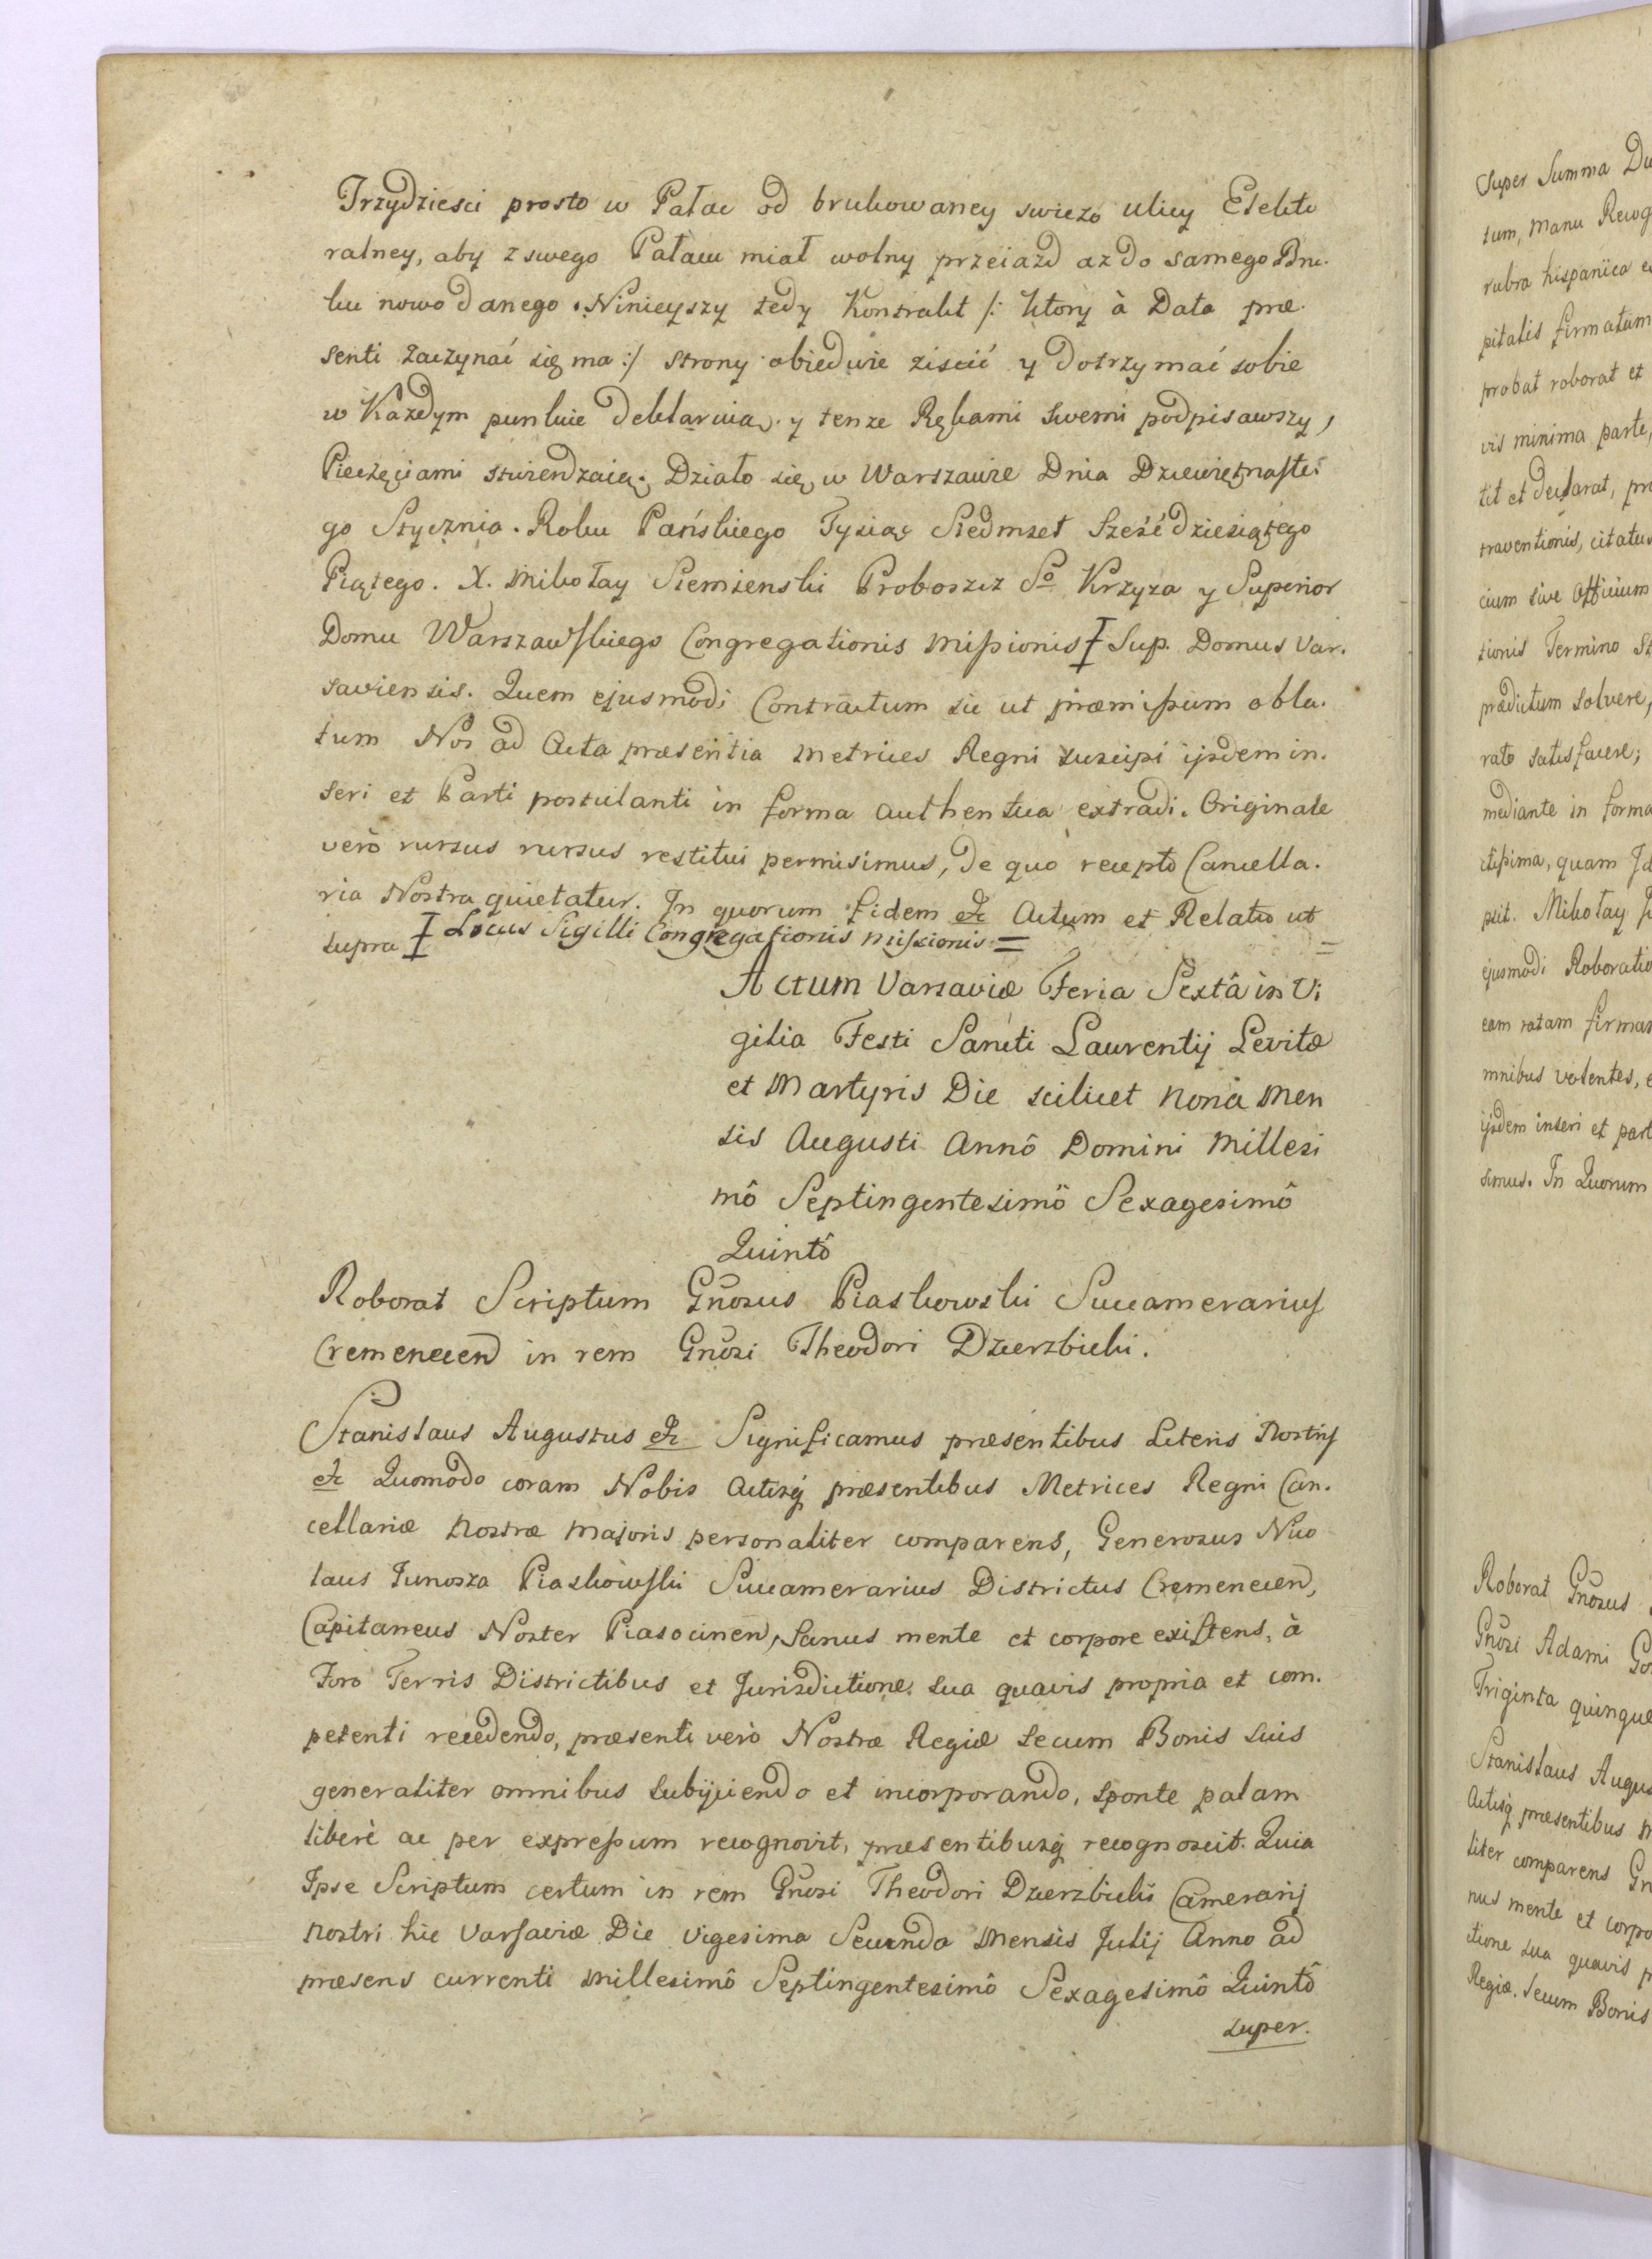 Trzydziesci prosto w Pałac od brukowaney swiezo ulicy Elekto
ralney, aby z swego Pałacu miał wolny przeiazd az do samego Bru-
ku nowo danego. Ninieyszy tedy Kontrakt /: ktory à Data præ-
senti zaczynać się ma :/ strony obiedwie ziscić y dotrzymać sobie
w Każdym punkcie deklaruią, y tenze Rękami swemi podpisawszy,
Pieczęciami stwierdzaią. Działo się w Warszawie Dnia Dziewiętnaste-
go Stycznia. Roku Pańskiego Tysiąc Siedmset Sześćdziesiątego
Piątego. X. Mikołay Siemienski Proboszcz So Krzyza y Superior
Domu Warszawskiego Congregationis Missionis ‡ Sup. Domus Var-
saviensis. Quem ejusmodi Contractum sic ut præmissum obla-
tum Nos ad Acta præsentia Metrices Regni suscipi ijsdem in-
seri et Parti postulanti in forma authentica extradi. Originale
verò rursus rursus restitui permisimus, de quo recepto Cancella-
ria Nostra quietatur. In quorum fidem etc Actum et Relatio ut
supra ‡ Locus Sigilli Congregationis Missionis = =
Actum Varsaviæ Feria Sextâ in Vi
gilia Festi Sancti Laurentij Levitæ
et Martyris Die scilicet nona Men
sis Augusti Annô Domini Millesi
mô Septingentesimô Sexagesimô
Quintô
Roborat Scriptum Gnosus Piaskowski Succamerarius
Cremenecen in rem Gnosi Theodori Dzierzbicki.
Stanislaus Augustus etc Significamus præsentibus Literis Nostris
etc Quomodo coram Nobis Actisq præsentibus Metrices Regni Can-
cellariæ Nostræ Majoris personaliter comparens, Generosus Nico
laus Junosza Piaskowski Succamerarius Districtus Cremenecen,
Capitaneus Noster Piasocinen, Sanus mente et corpore existens, à
Foro Terris Districtibus et Jurisdictione sua quavis propria et com-
petenti recedendo, præsenti verò Nostræ Regiæ secum Bonis suis
generaliter omnibus subijciendo et incorporando, sponte palam
liberè ac per expressum recognovit, præsentibusq recognoscit. Quia
Ipse Scriptum certum in rem Gnosi Theodori Dzierzbicki Camerarij
Nostri hic Varsaviæ Die Vigesima Secunda Mensis Julij Anno ad
præsens currenti Millesimô Septingentesimô Sexagesimô Quintô
super.
Super Summa Du
tum, manu Recog
rubra hispanica
pitalis firmatum
probat roborat et
vis minima parte,
tit et declarat, pro
traventionis, citatus
cium sive Officium
tionis Termino
prædictum solvere,
rato satisfacere;
mediante in forma
ctissima, quam Id
psit. Mikołay
ejusmodi Roboratio
eam ratam firmam
mnibus volentes,
ijsdem inseri et part
simus. In Quorum
Roborat Gnosus
Gnosi Adami
Triginta quinque
Stanislaus Augus
Actisq præsentibus M
liter comparens Gn
nus mente et corpo
ctione sua quavis p
Regiæ. Secum Bonis